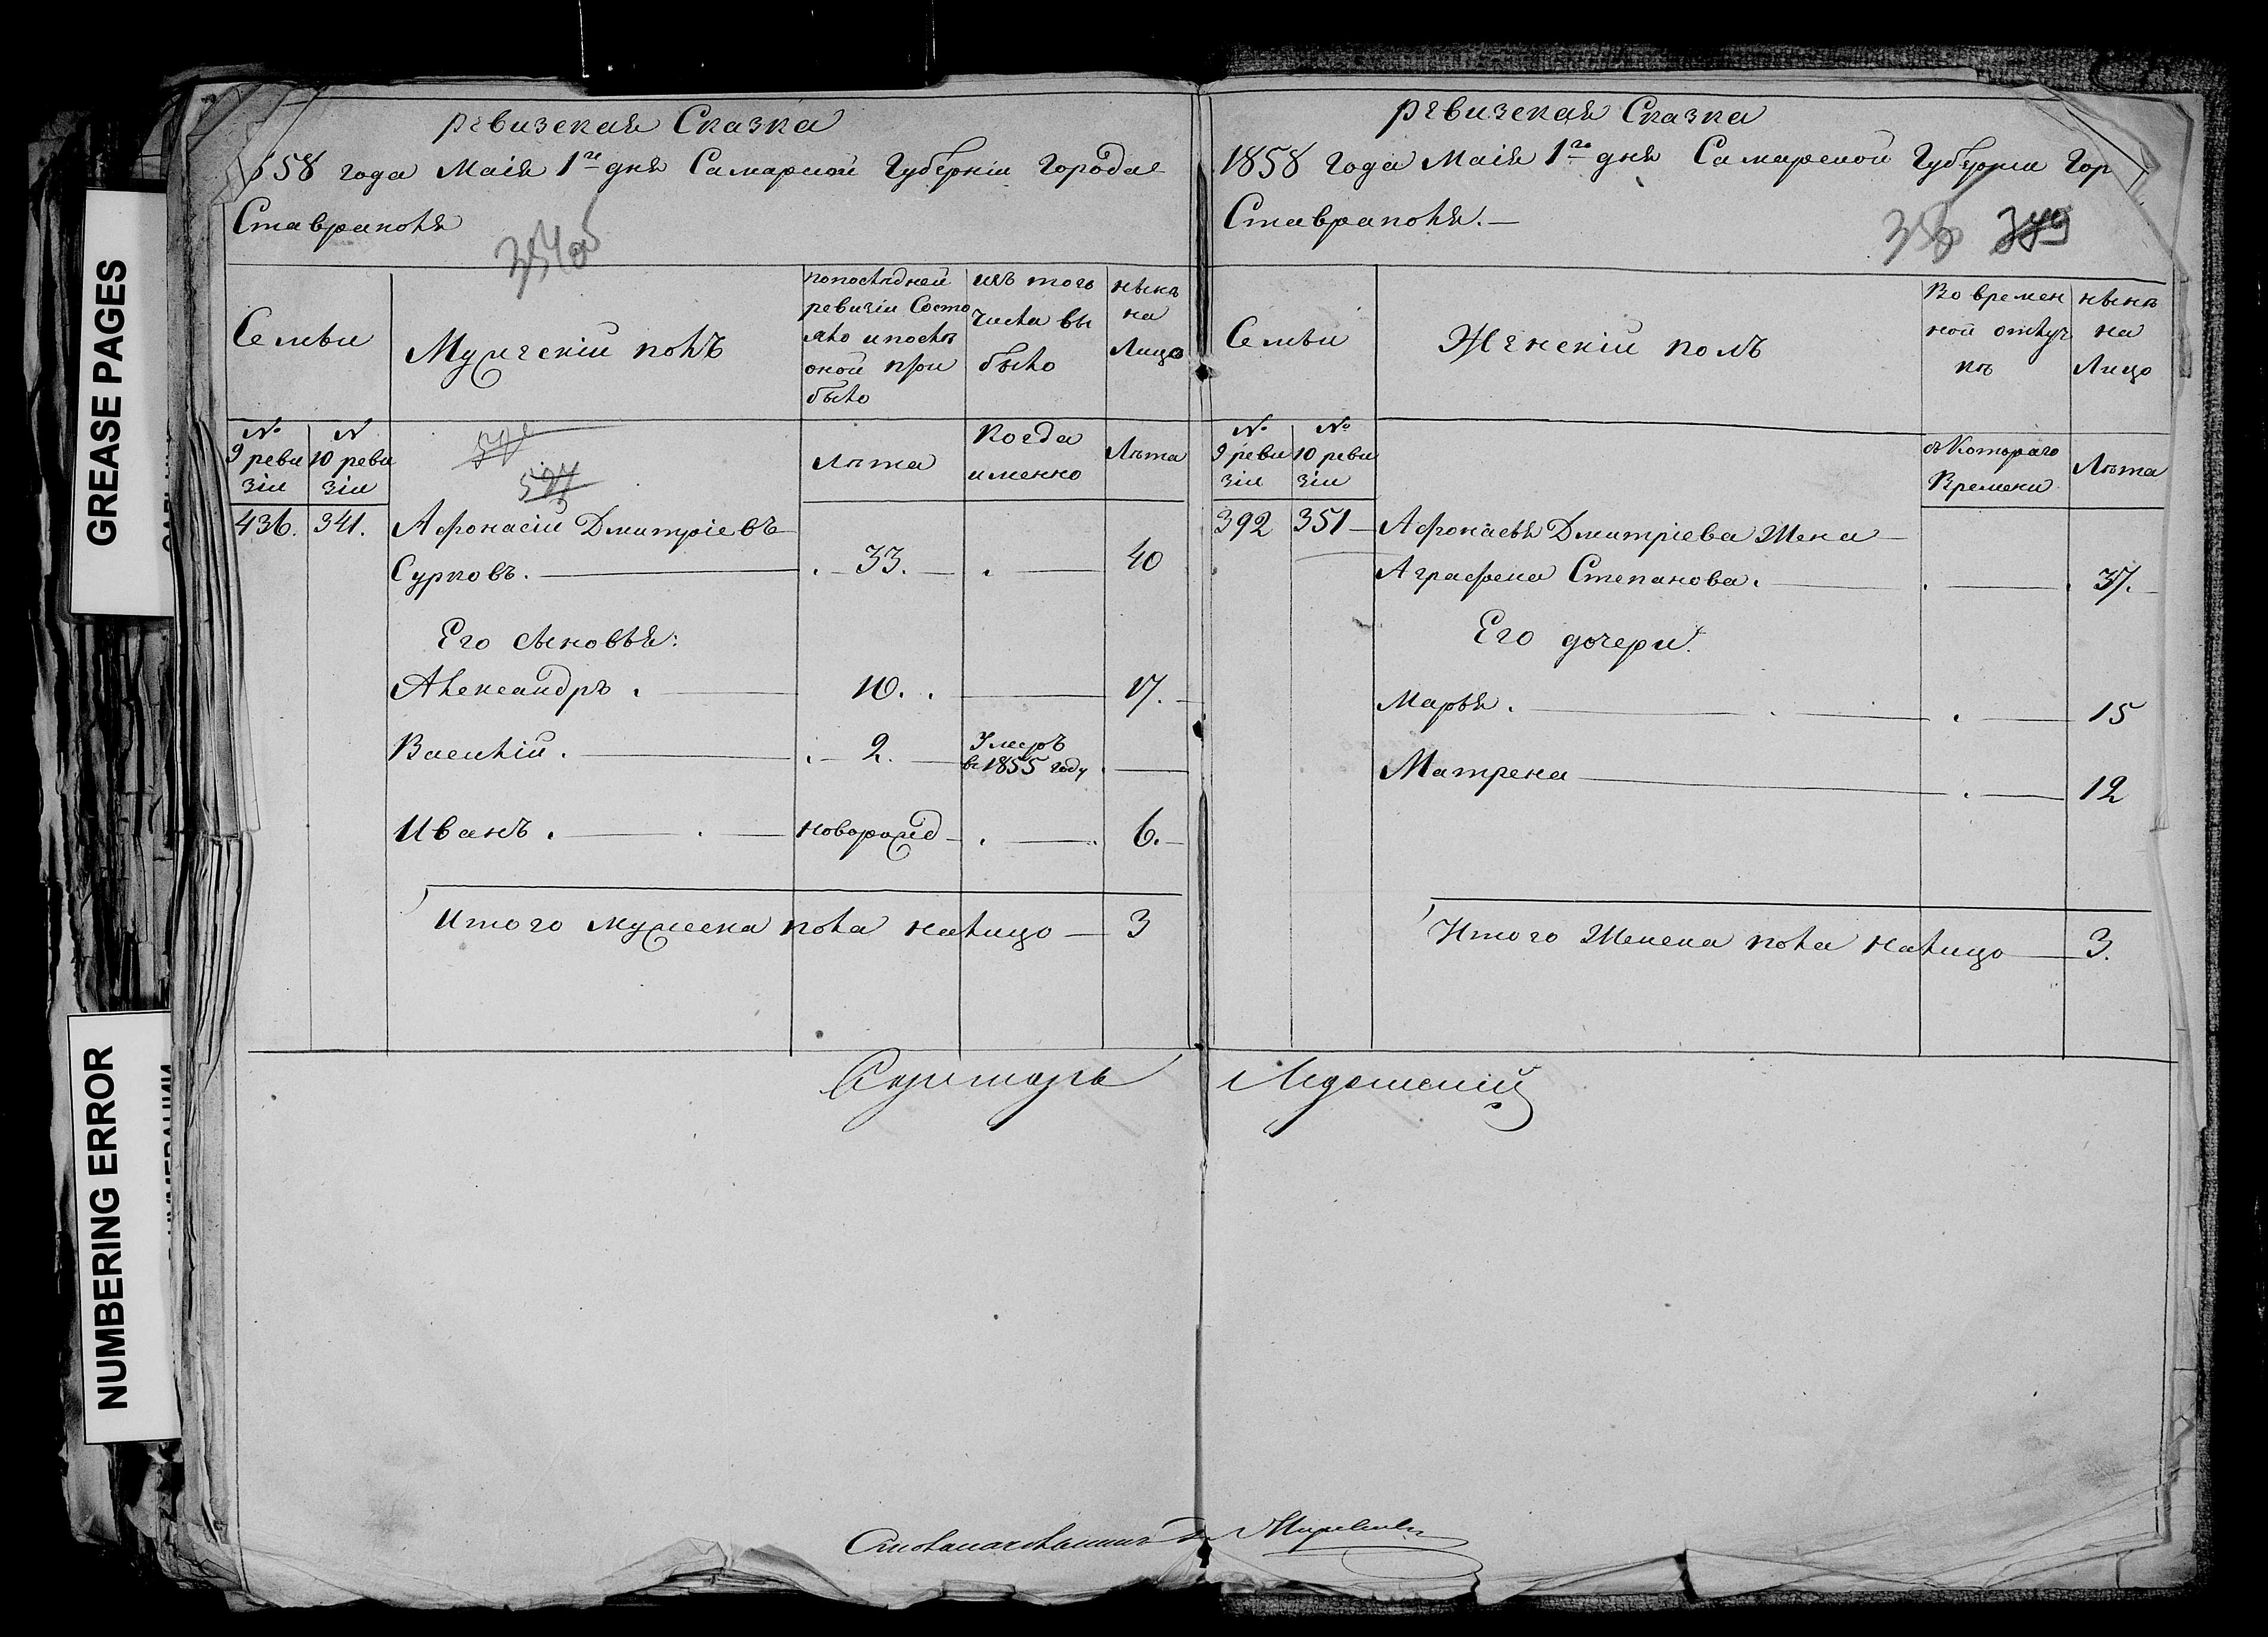 GREASE PAGES
NUMBERING ERROR
ревизская Сказка
1858 года Маія 1го дня Самарской Губерніи Города
Ставраполя
354об
Семьи
Мужескій полъ
попослѣдней
ревизіи Состо
яло и послѣ
оной при
было
изъ того
числа вы
было
нынѣ
на
Лицо
№
9 реви
зіи
N
10 реви
зіи
Лѣта
Когда
именно
Лѣта
436. 341. Афонасій Дмитріевъ
Сурковъ. — 33. — 40
Его сыновья:
Александръ. — 10. — 17.
Василій. — 2. — Умеръ
въ 1855 году
Иванъ. — новорожд — 6.
Итого мужеска пола налицо — 3
Секретарь
ревизская Сказка
1858 года Маія 1го дня Самарской Губерніи Гор
Ставраполя. —
355
Семьи
Женскій полъ
Во времен
ной отлуч
кѣ
нынѣ
на
Лицо
№
9 реви
зіи
№
10 реви
зіи
съ Котораго
Времени
Лѣта
392 351 — Афонасья Дмитріева Жена —
Аграфена Степанова. — 37.
Его дочери:
Марья. — 15
Матрена — 12
Итого Женска пола налицо — 3.